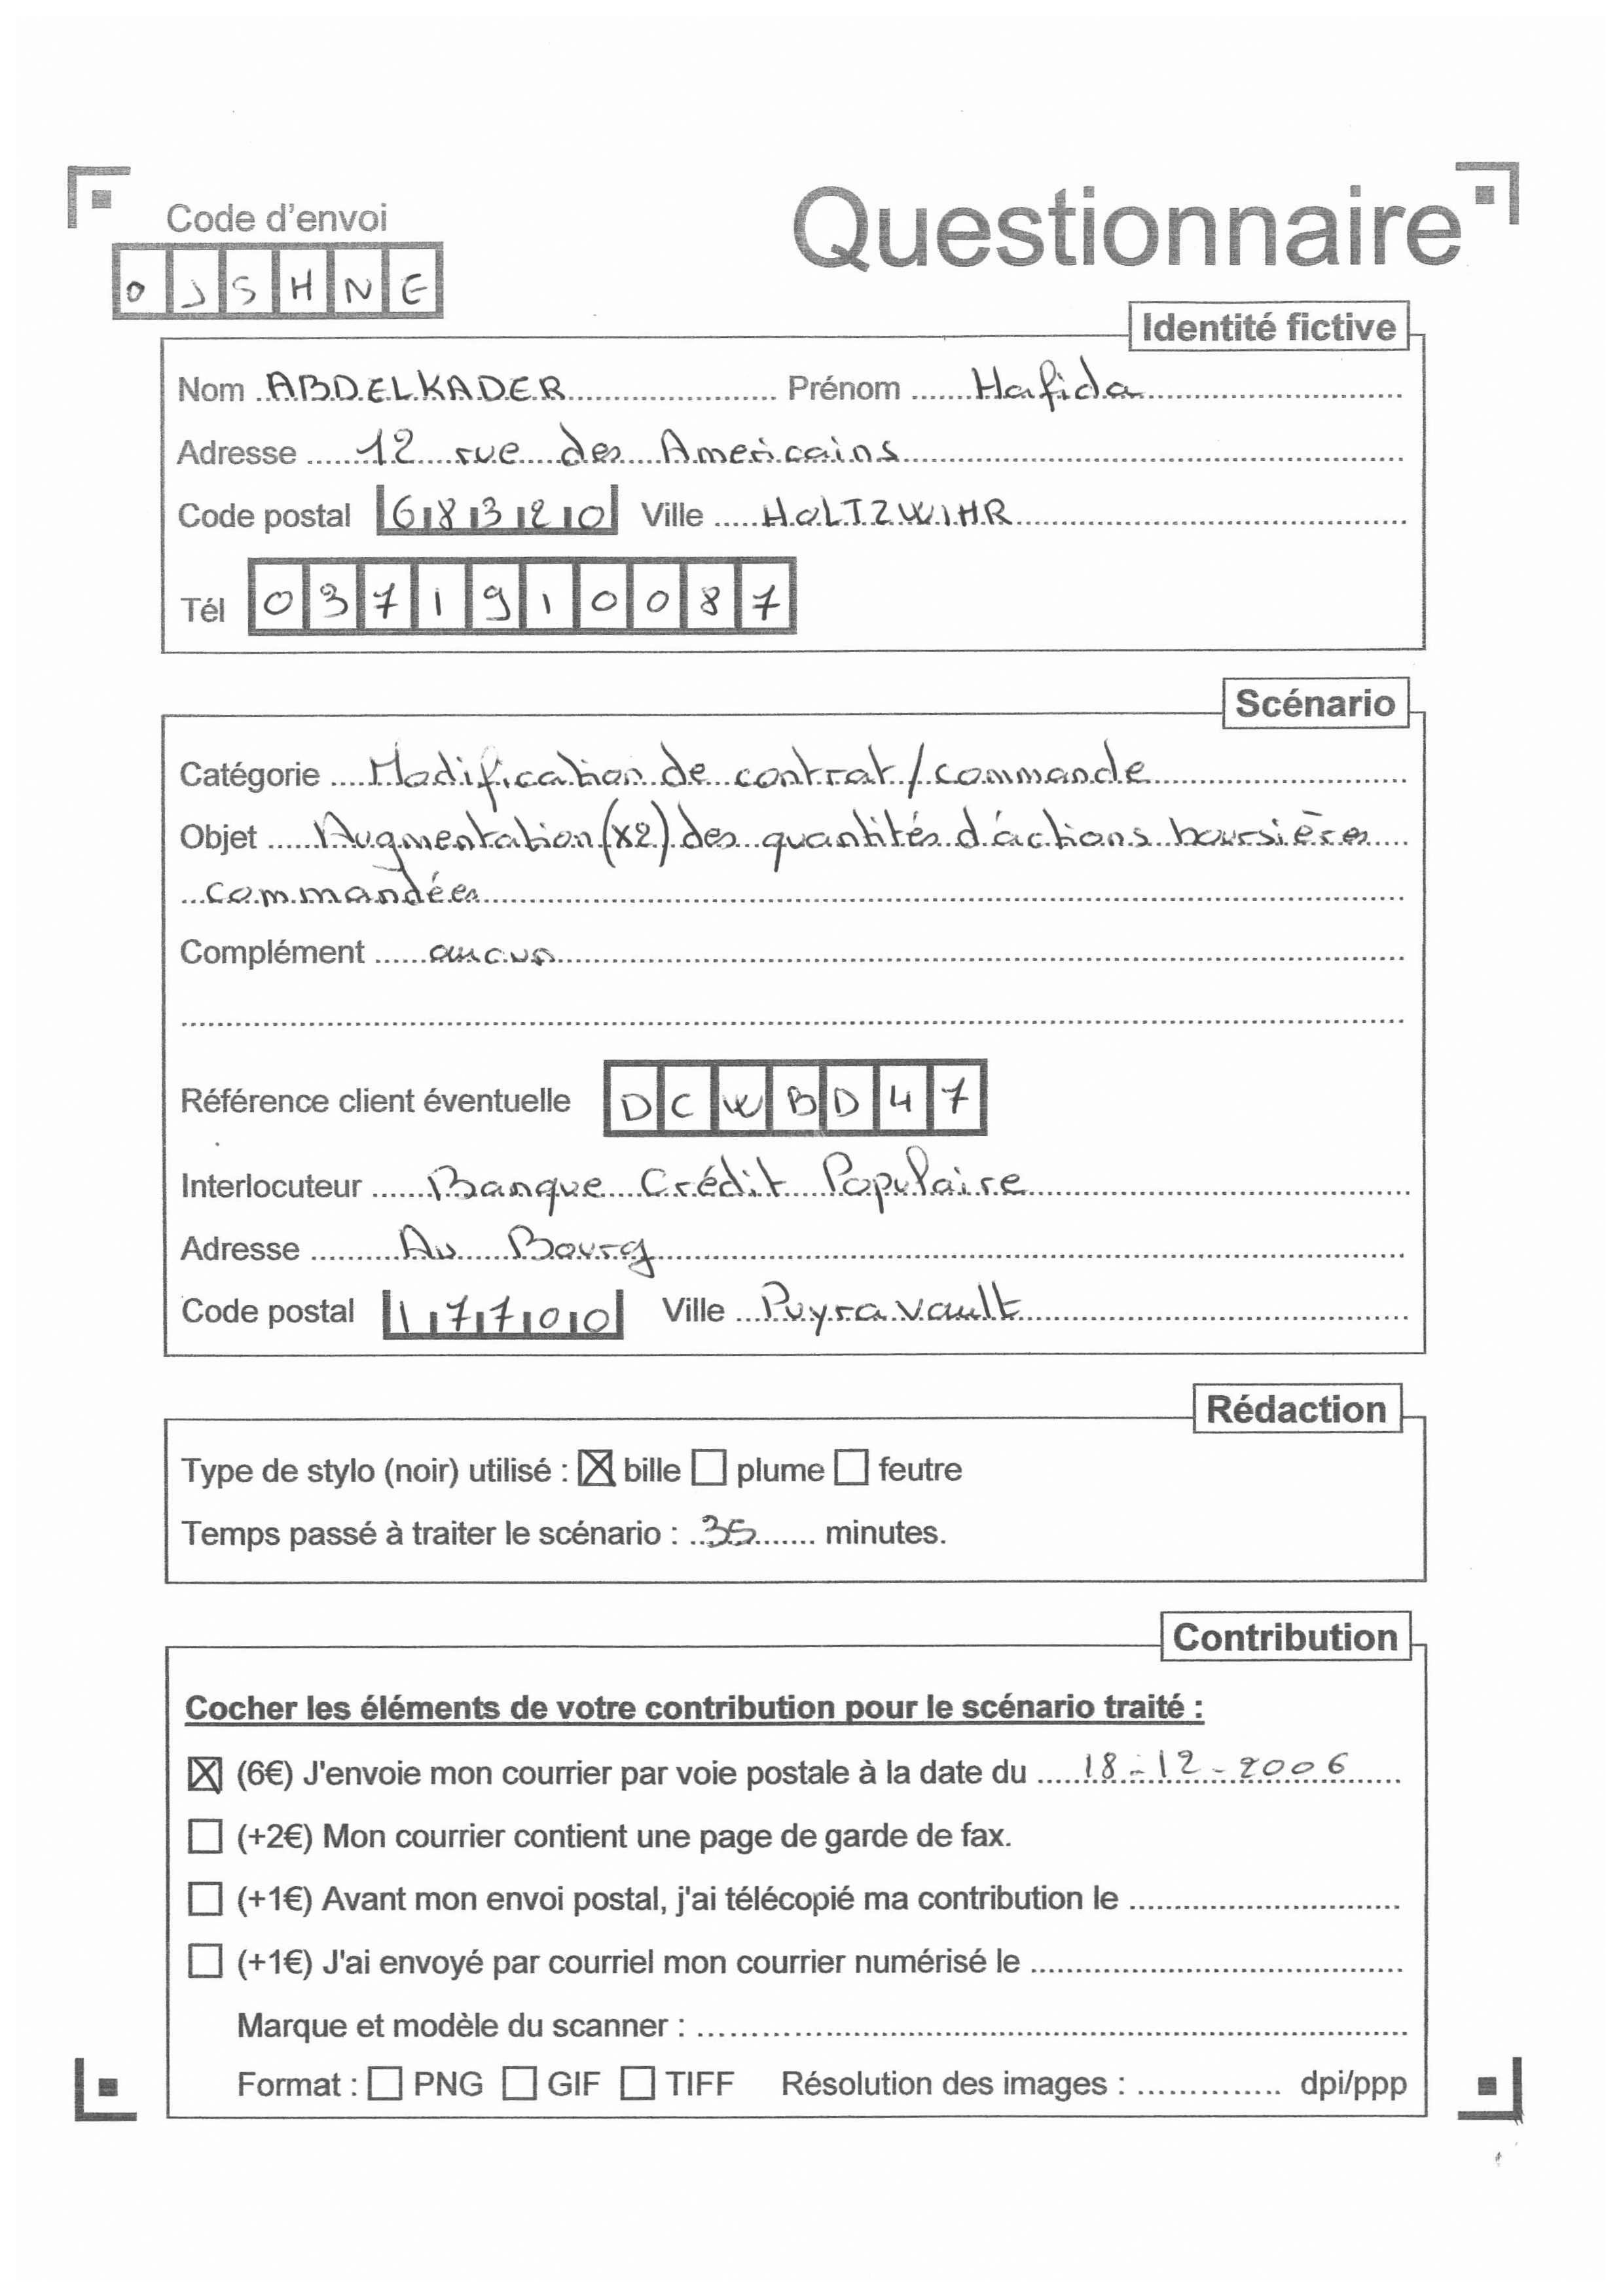 Code d'envoi
Questionnaire
O J S H N E
Identité fictive
Nom ABDELKADER Prénom Hafida
Adresse 12 rue des Americains
Code postal 68320 Ville HOLTZWIHR
Tél 0371910087
Scénario
Catégorie Modification de contrat/commande
Objet Augmentation (x2) des quantités d'actions boursières
commandées
Complément aucun
Référence client éventuelle DCWBD47
Interlocuteur Banque Crédit Populaire
Adresse Au Bourg
Code postal 17700 Ville Puyravault
Rédaction
Type de stylo (noir) utilisé : ☒ bille ☐ plume ☐ feutre
Temps passé à traiter le scénario : 35 minutes.
Contribution
Cocher les éléments de votre contribution pour le scénario traité :
☒ (6€) J'envoie mon courrier par voie postale à la date du 18-12-2006
☐ (+2€) Mon courrier contient une page de garde de fax.
☐ (+1€) Avant mon envoi postal, j'ai télécopié ma contribution le
☐ (+1€) J'ai envoyé par courriel mon courrier numérisé le
Marque et modèle du scanner :
Format : ☐ PNG ☐ GIF ☐ TIFF Résolution des images : dpi/ppp